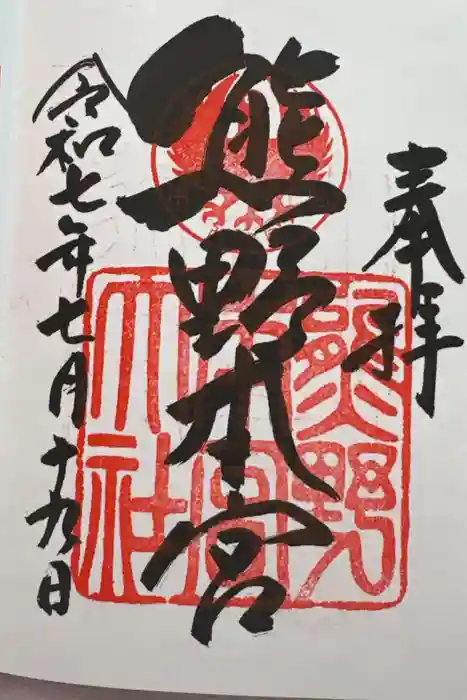 奉拝
熊野本宮
熊野
本宮
大社
令和七年七月十九日